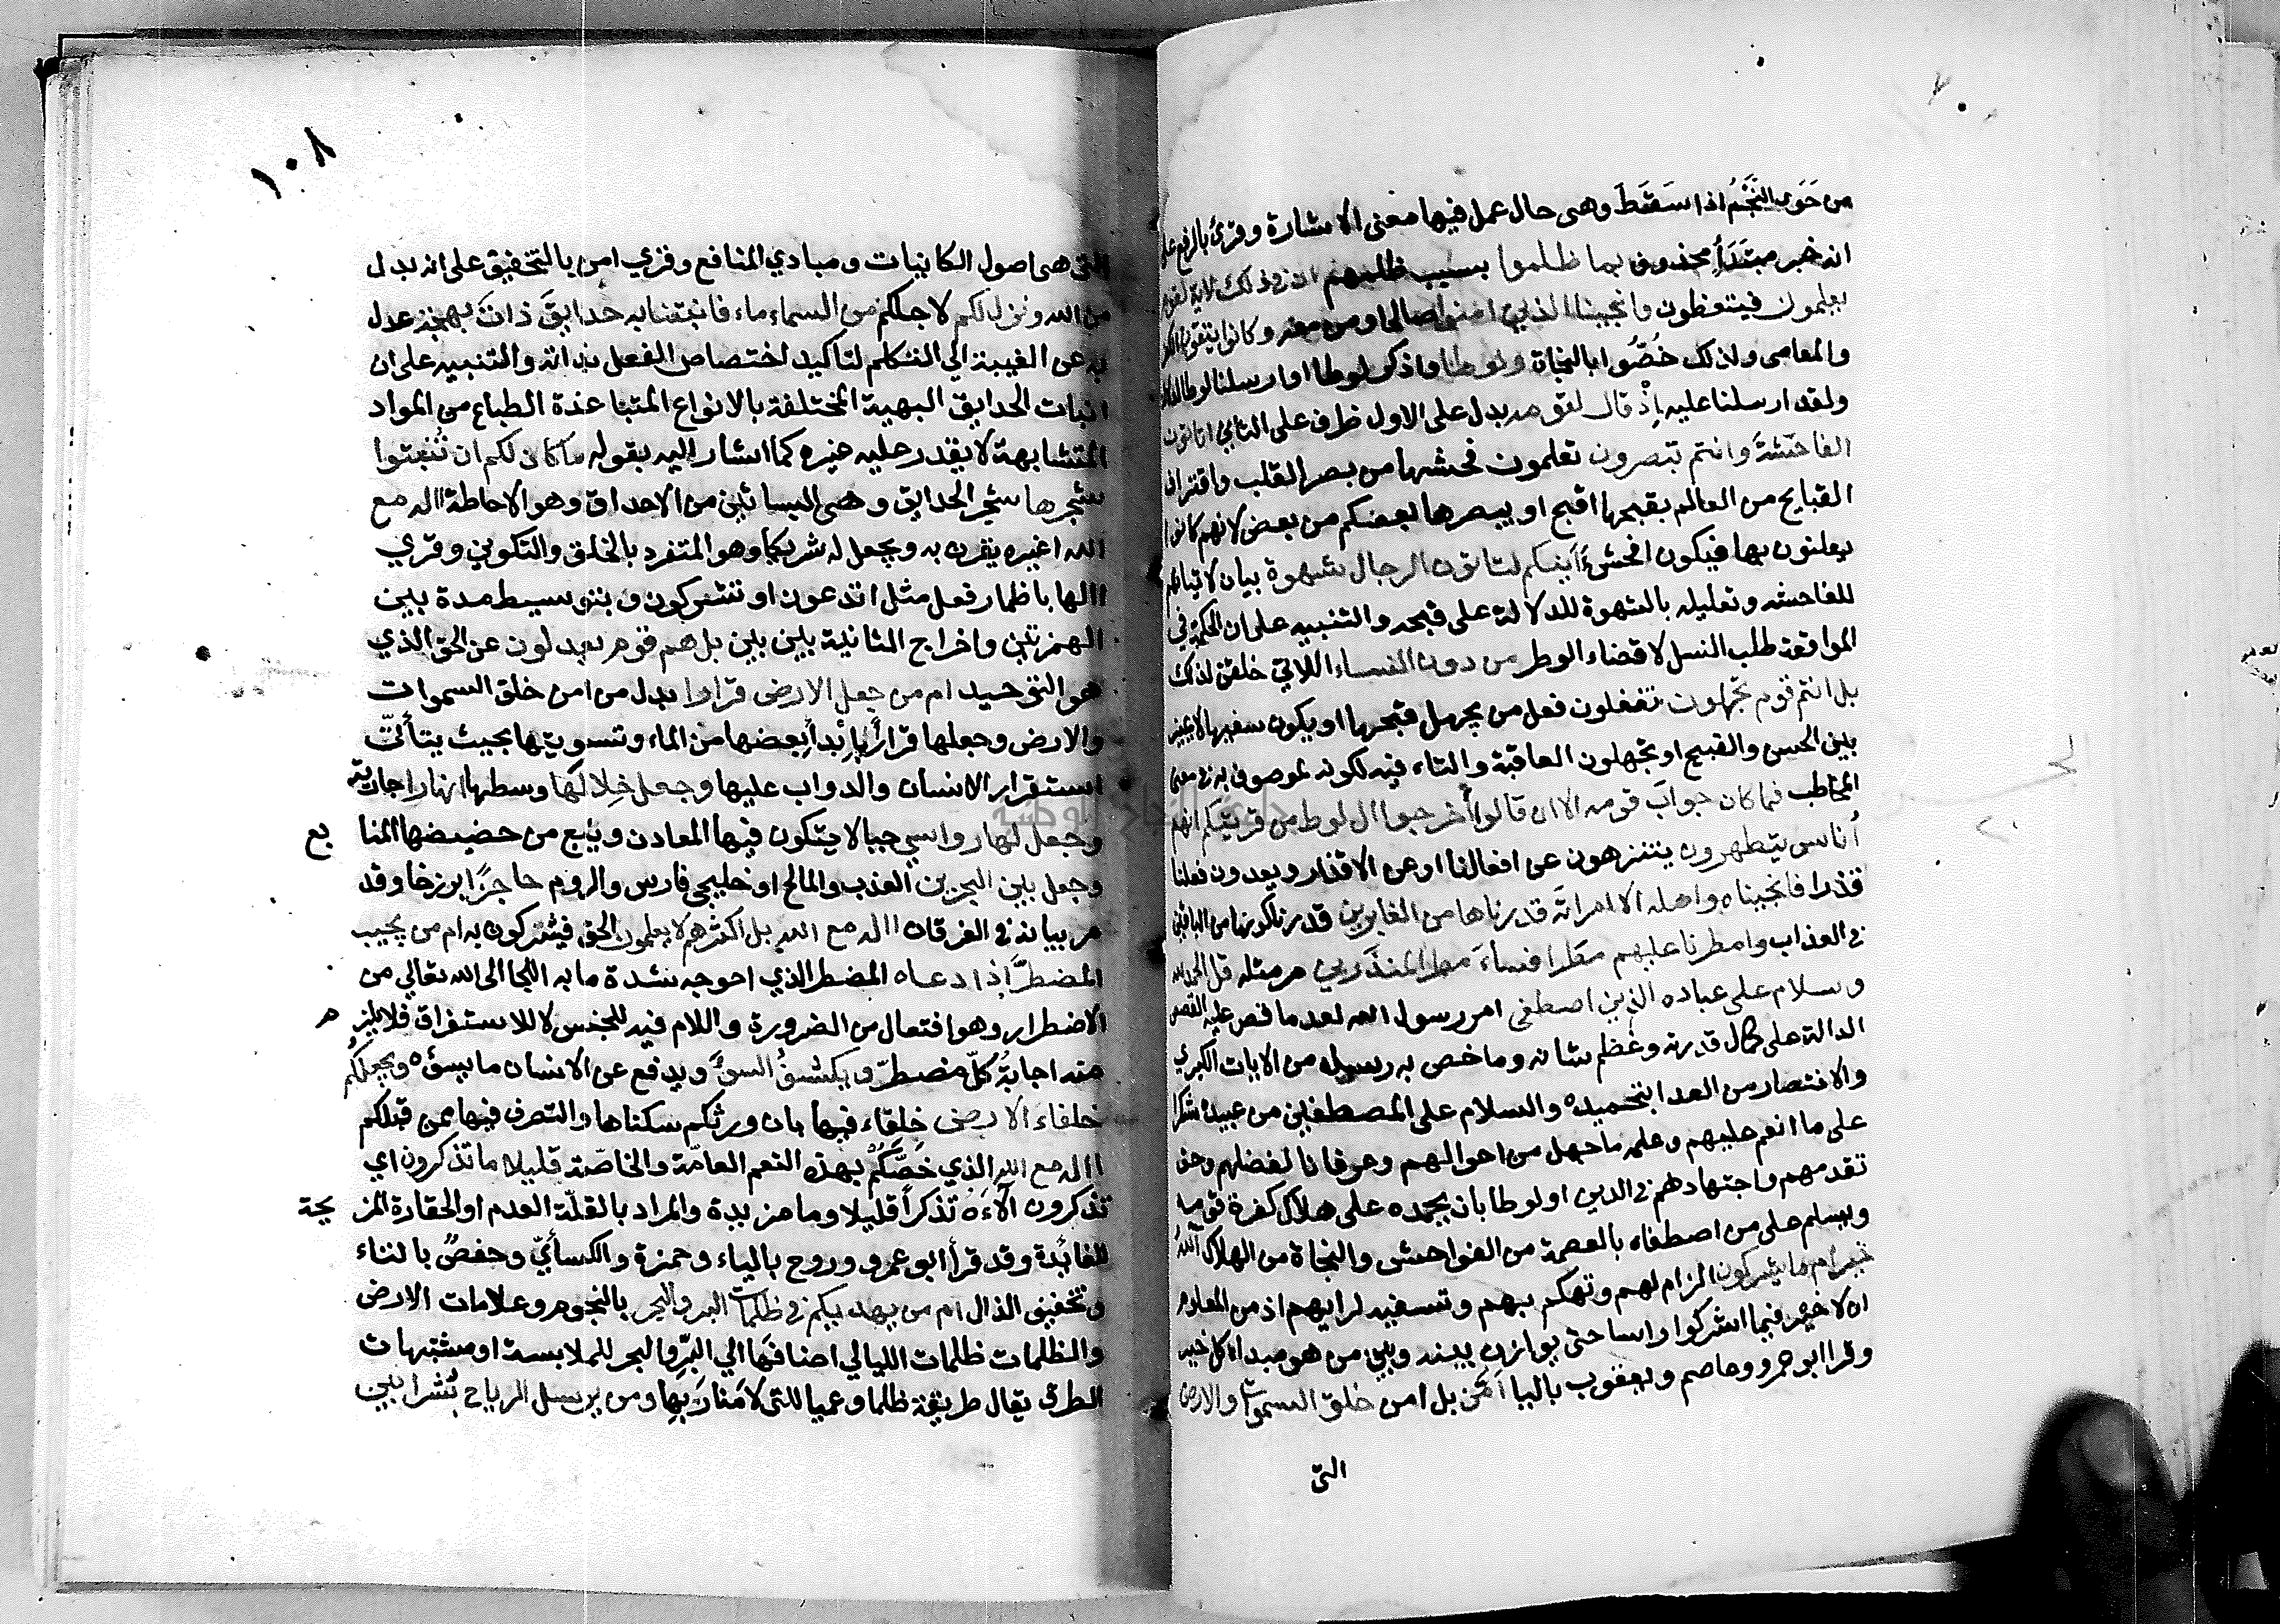 من خَوَى النَّجْمُ اذا سَقَطَ وهى حال عمل فيها معنى الاشارة وقرئ بالرفع على
انه خبر مبتَدَأٍ محذوف بما ظلموا بسبب ظلمهم ان فى ذلك لاية لقوم
يعلمون فيتعظون وانجينا الذين امنوا صالحا ومن معه وكانوا يتقون الكفر
والمعاصى ولذلك خُصُّوا بالنجاة ولوطا واذكر لوطا او ارسلنا لوطا لدلالة
ولقد ارسلنا عليه إِذْ قال لقومه بدل على الاول ظرف على الثاني اتاتون
الفاحشةَ وانتم تبصرون تعلمون فحشها من بصر القلب واقتراف
القبايح من العالم بقبحها اقبح او يبصرها بعضكم من بعض لانهم كانوا
يعلنون بها فيكون افحشَ أَينكم لتاتون الرجال شهوة بيان لاتيانهم
للفاحشه وتعليله بالشهوة للدلالة على قبحه والتنبيه على ان الحكمة في
المواقعة طلب النسل لا قضاء الوطر من دون النساء اللاتي خلقن لذلك
بل انتم قوم تجهلون تفعلون فعل من يجهل قبحها او يكون سفيها لا يميز
بين الحسن والقبيح او تجهلون العاقبة والتاء فيه لكونه الموصوف به في معنى
المخاطب فما كان جوابَ قومه الا ان قالوا أخرجوا ال لوط من قريتكم انهم
أناس يتطهرون يتنزهون عن افعالنا او عن الاقذار ويعدون فعلنا
قذرا فانجيناه واهله الا امراته قدرناها من الغابرين قدرنا كونها من الباقين
فى العذاب وامطرنا عليهم مطرا فساءَ مطرا لمنذَرين مر مثله قل الحمد لله
وسلام على عباده الذين اصطفى امر رسول الله بعد ما قص عليه القصص
الدالة على كمال قدرته وعُظم شانه وما خص به رسله من الايات الكبري
والانتصار من العدا بتحميده والسلام على المصطفين من عبيده شكرا
على ما انعم عليهم وعلمه ما جهل من احوالهم وعرفانا لفضلهم وحق
تقدمهم واجتهادهم فى الدين او لوطا بان يحمده على هلاك كفرة قومه
ويسلم على من اصطفاه بالعصمة من الفواحش والنجاة من الهلاك آللهُ
خير أم ما يشركون الزام لهم وتهكم بهم وتسفيه لرايهم اذ من المعلوم
ان لا خير فيما اشركوا راسا حتى يوازن بينه وبين من هو مبداء كل خير
وقرا ابو عمرو وعاصم ويعقوب باليا أمّن بل امن خلق السموات والارض
التى
١٠٨
التى هى اصول الكاينات ومبادي المنافع وقري امن بالتخفيف على انه بدل
من الله ونزل لكم لاجلكم من السماء ماء فانبتنا به حدايقَ ذاتَ بهجة عدل
به عن الغيبة الي المتكلم لتاكيد اختصاص الفعل بذاته والتنبيه على ان
انبات الحدايق البهية المختلفة بالانواع المتباعدة الطباع من المواد
المتشابهة لا يقدر عليه غيره كما اشار اليه بقوله ما كان لكم ان تُنبتوا
شجرها شجر الحدايق وهى البساتين من الاحداق وهو الاحاطة االه مع
الله اغيره يقرن به ويجعل له شريكا وهو المتفرد بالخلق والتكوين وقري
االها باظمار فعل مثل اتدعون او تشركون وبتوسيط مدة بين
الهمزتين واخراج الثانية بين بين بل هم قوم يعدلون عن الحق الذي
هو التوحيد ام من جعل الارض قرارا بدل من امن خلق السموات
والارض وجعلها قراراً بإِبْدأ بعضها من الماء وتسويتها بحيث يتأتّ
استقرار الانسان والدواب عليها وجعل خِلالَها وسطها انهارا جارية
وجعل لها رواسي جبالا يتكون فيها المعادن وينبع من حضيضها المنا بع
وجعل بين البحرين العذب والمالح او خليجي فارس والروم حاجزًا برزخا وقد
مر بيانه فى الفرقان االه مع الله بل اكثرهم لا يعلمون الحق فيشركون به ام من يجيب
المضطرَّ إذا دعاه المضطر الذي احوجه شدة ما به اللجا الى الله تعالي من
الاضطرار وهو افتعال من الضرورة واللام فيه للجنس لا للاستغراق فلا يلز م
منه اجابةُ كلّ مضطرّ ويكشفُ السوءَ ويدفع عن الانسان ما يسؤه ويجعلكُم
خلفاء الارض خلفاء فيها بان ورثكم سكناها والتصرف فيها ممن قبلكم
االه مع الله الذي خَصَّكُمْ بهذه النعم العامّة والخاصّة قليلا ما تذكرون اي
تذكرون آلآءَه تذكراً قليلا وما مزيدة والمراد بالقلّة العدم او الحقارة المز يحة
للفائدة وقد قرأ ابو عمرو وروح بالياء وحمزة والكسائيّ وحفصٌ بالتاء
وتخفيف الذال ام من يهديكم فى ظلمات البر والبحر بالنجوم وعلامات الارض
والظلمات ظلمات الليالي اضافَها الي البرّ والبحر للملابسة او مشتبهات
الطرق يقال طريقة ظلما وعميا للتى لا مَنارَ بِها ومن يرسل الرياح بُشرا بين